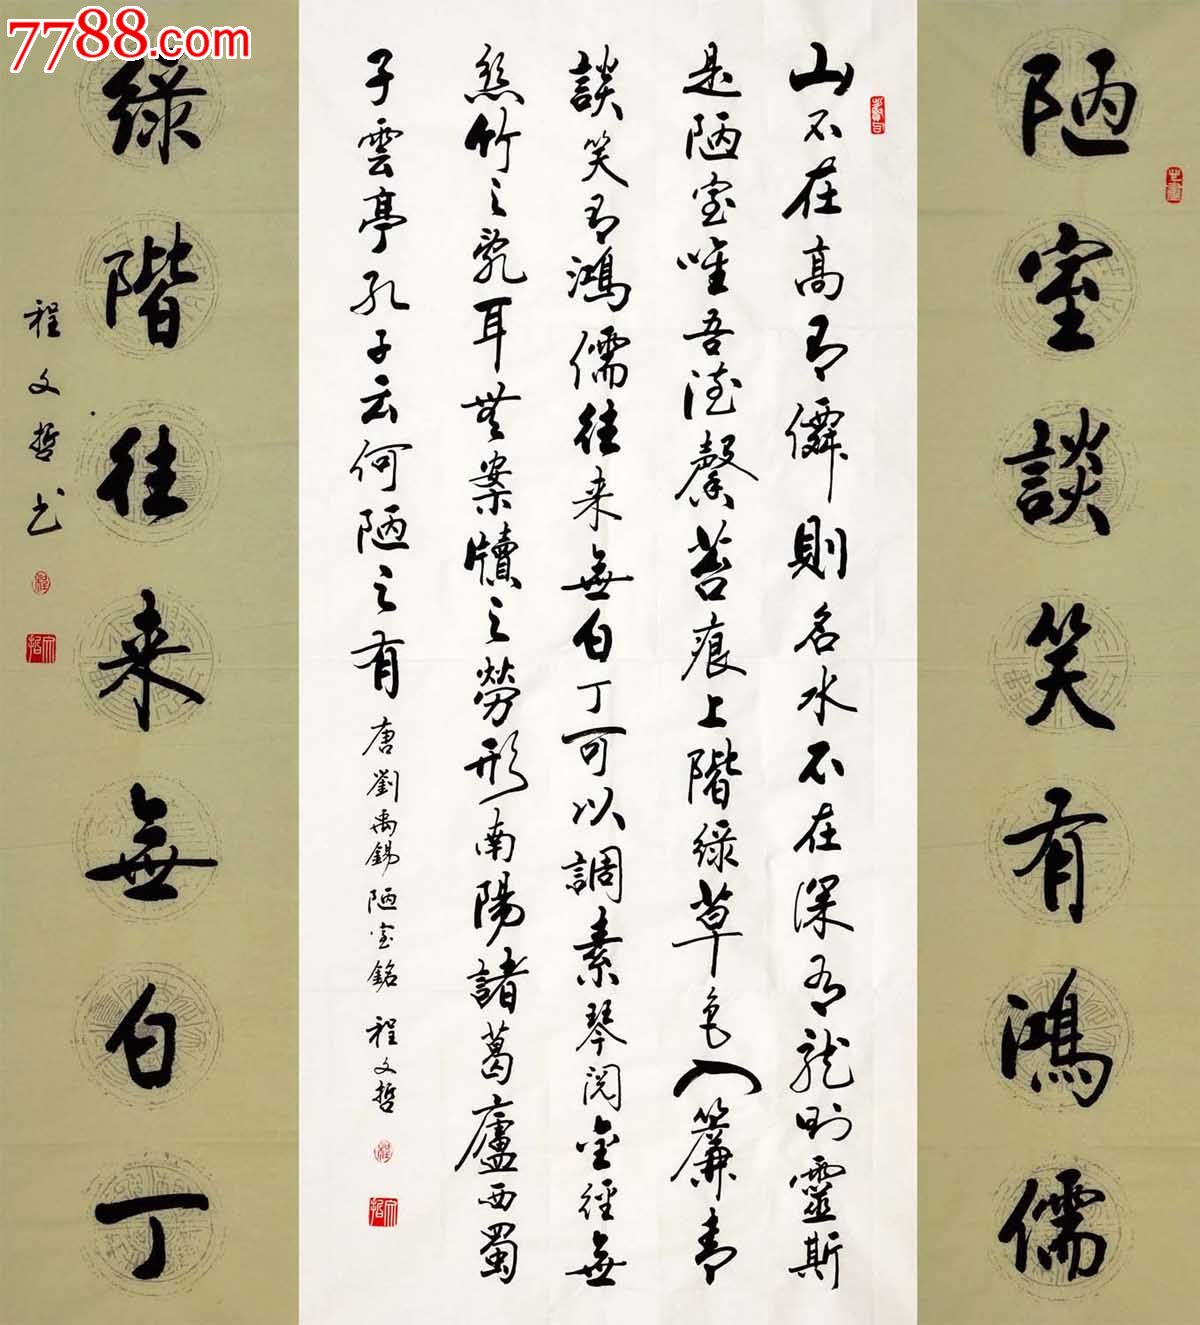 7788.com
陋室談笑有鴻儒
山不在高有僊則名水不在深有龍則靈斯
是陋室唯吾德馨苔痕上階綠草色入簾青
談笑有鴻儒往来無白丁可以調素琴閱金經無
絲竹之亂耳無案牘之勞形南陽諸葛廬西蜀
子雲亭孔子云何陋之有 唐劉禹錫陋室銘 程文哲
綠階往来無白丁
程文哲书